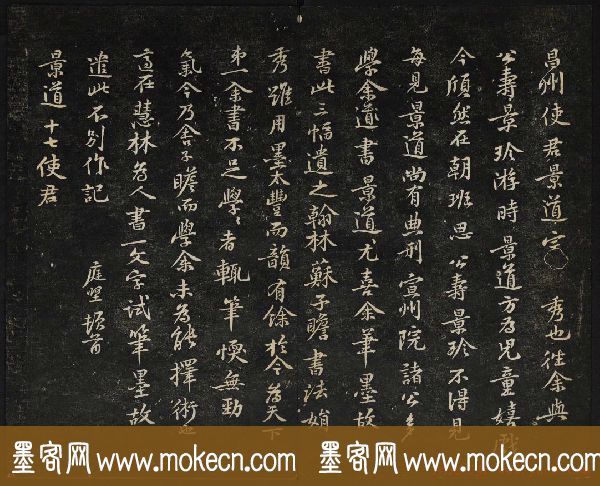 昌州使君景道宗秀也往余與
公壽景珍游時景道方為兒童嬉戲
今頎然在朝班思公壽景珍不得見
每見景道尚有典刑宣州院諸公多
學余道書景道尤喜余筆墨故
書此三幅遺之翰林蘇子瞻書法娟
秀雖用墨太豐而韻有餘於今為天下
第一余書不足學々者輒筆愞無勁
氣今乃舍子瞻而學余未為能擇術也
適在慧林為人書一文字試筆墨故
遣此不別作記
庭堅頓首
景道十七使君
墨客网 www.mokecn.com 墨客网 www.mokecn.com